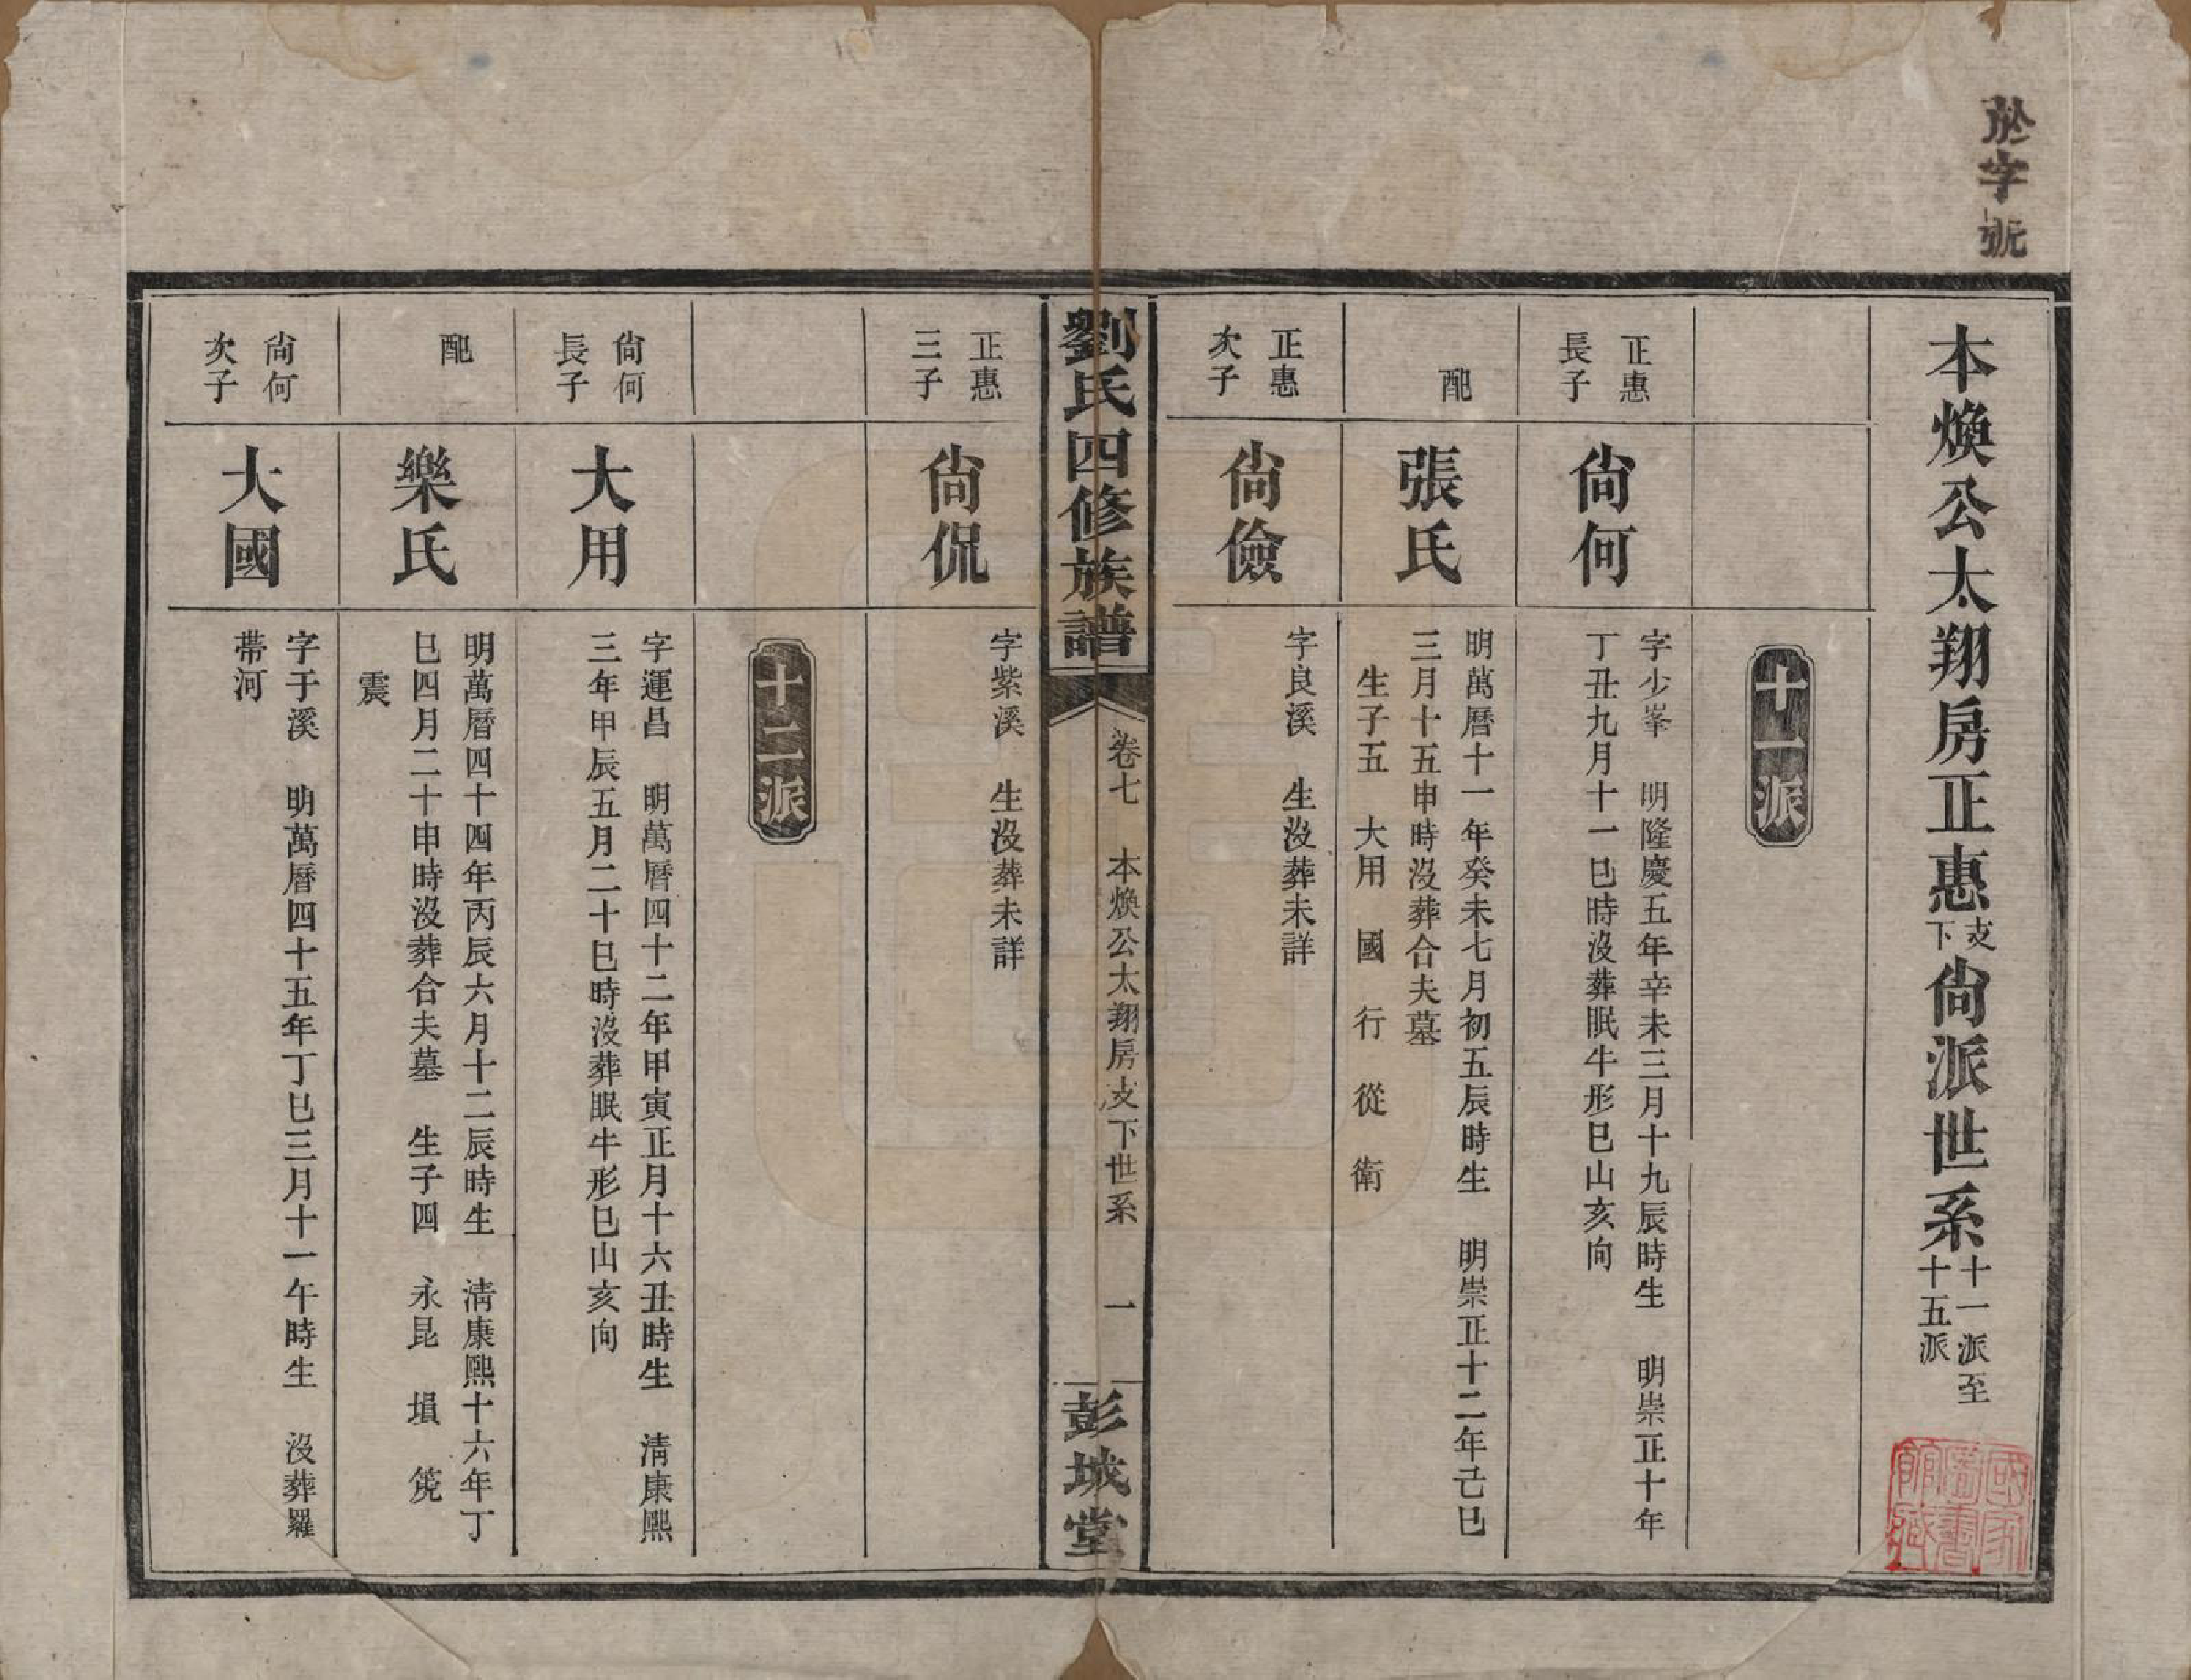 於字號
本煥公太翔房正惠支下尙派世系十一派至十五派
十一派
正惠長子
尙何
字少峯　明隆慶五年辛未三月十九辰時生　明崇正十年
丁丑九月十一巳時沒葬眠牛形巳山亥向
配
張氏
明萬曆十一年癸未七月初五辰時生　明崇正十二年己巳
三月十五申時沒葬合夫墓
生子五　大用　國　行　從　衛
正惠次子
尙儉
字良溪　生沒葬未詳
劉氏四修族譜
卷七　本煥公太翔房支下世系　一
彭城堂
正惠三子
尙侃
字紫溪　生沒葬未詳
十二派
尙何長子
大用
字運昌　明萬曆四十二年甲寅正月十六丑時生　清康熙
三年甲辰五月二十巳時沒葬眠牛形巳山亥向
配
樂氏
明萬曆四十四年丙辰六月十二辰時生　清康熙十六年丁
巳四月二十申時沒葬合夫墓　生子四　永昆　塤　箎
震
尙何次子
大國
字于溪　明萬曆四十五年丁巳三月十一午時生　沒葬羅
帶河
國家圖書館藏